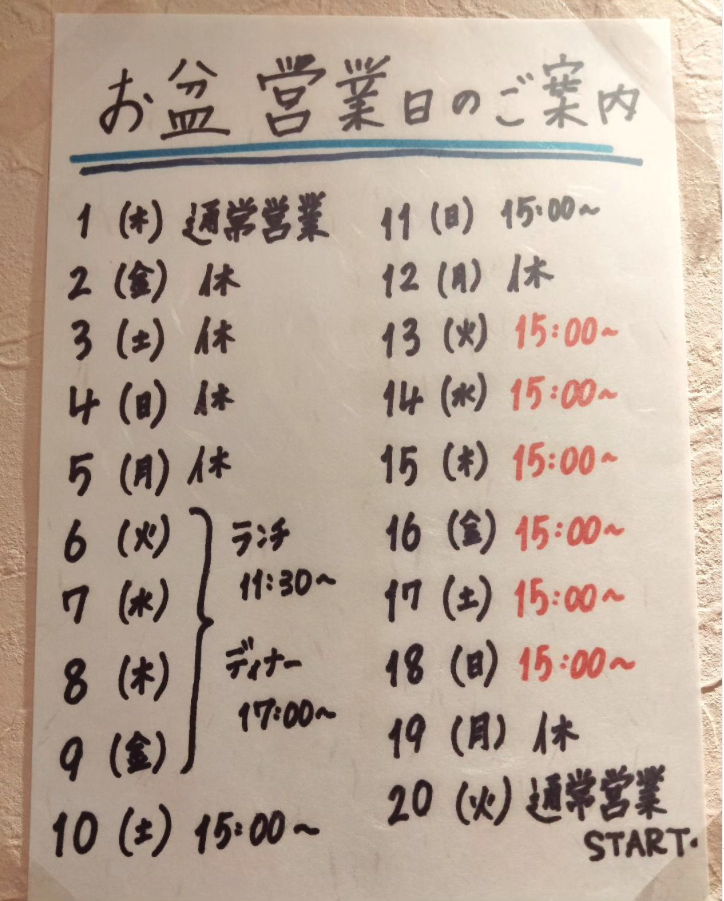 お盆 営業日のご案内
1 (木) 通常営業
2 (金) 休
3 (土) 休
4 (日) 休
5 (月) 休
6 (火)
7 (水)
8 (木)
9 (金)
ランチ
11:30~
ディナー
17:00~
10 (土) 15:00~
11 (日) 15:00~
12 (月) 休
13 (火) 15:00~
14 (水) 15:00~
15 (木) 15:00~
16 (金) 15:00~
17 (土) 15:00~
18 (日) 15:00~
19 (月) 休
20 (火) 通常営業
START.